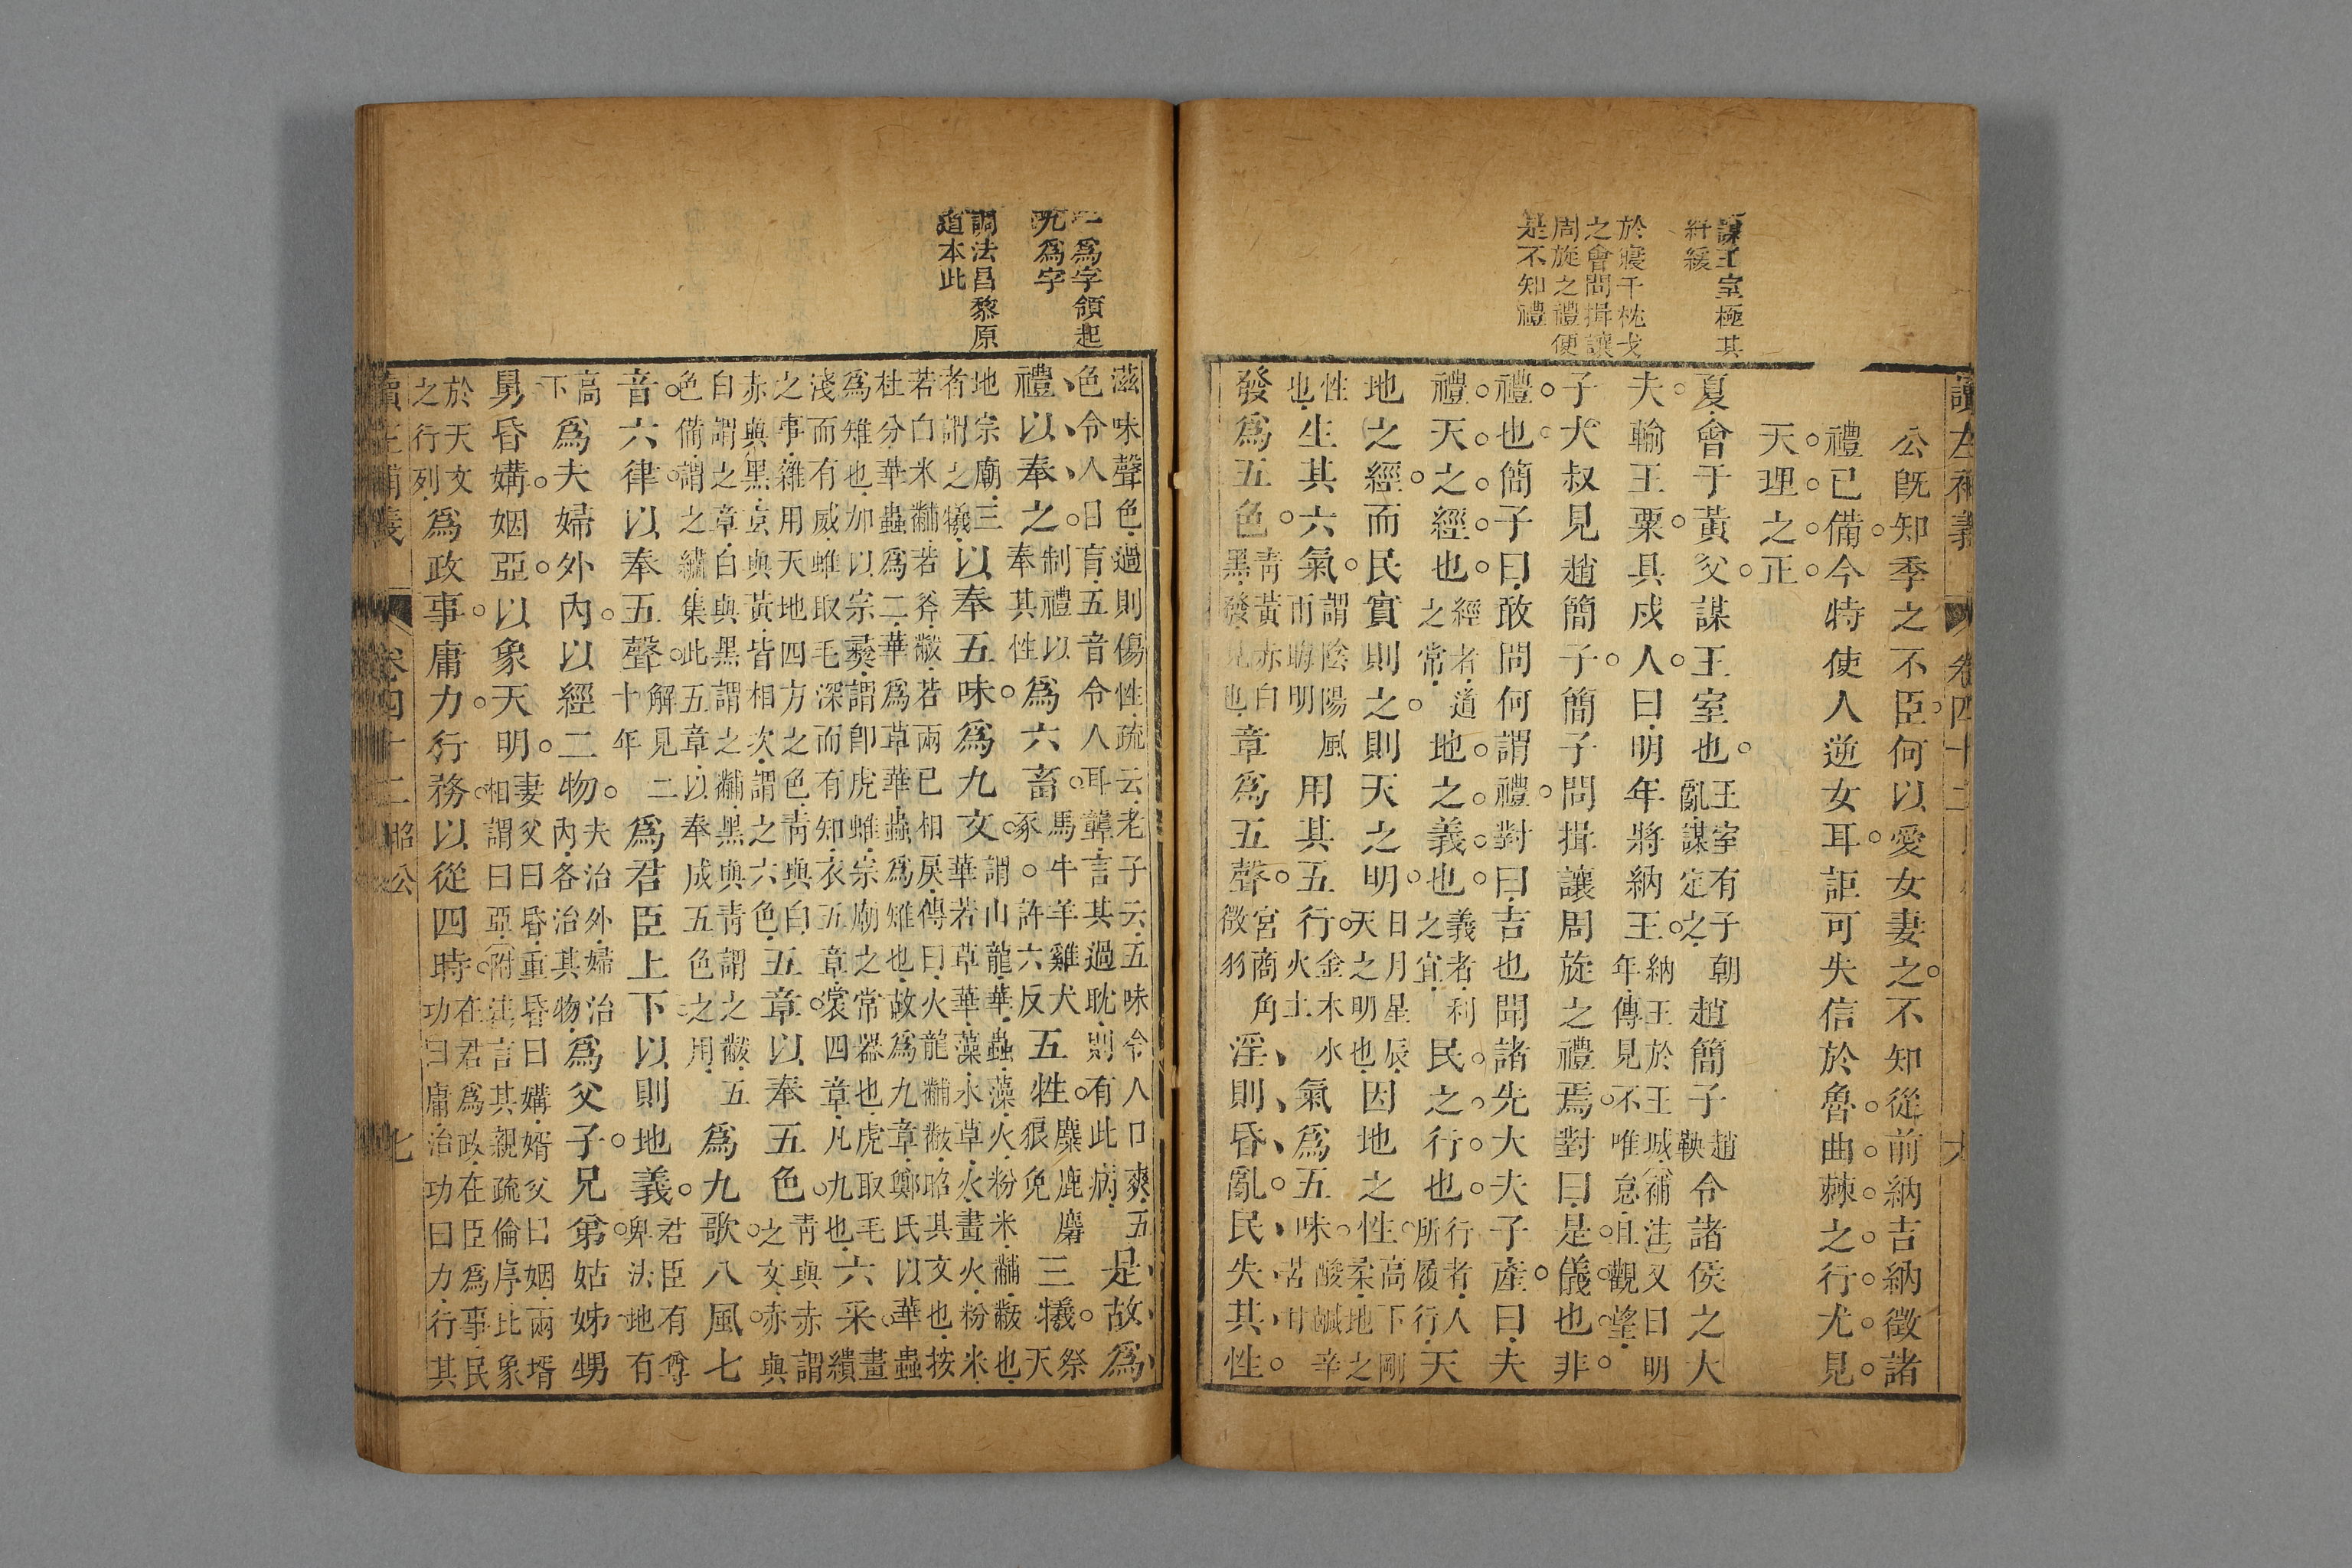 讀左補義 卷四十二 六
謀王室極其
紆緩
於寢干枕戈
之會問揖讓
周旋之禮便
是不知禮
公旣知季之不臣何以愛女妻之不知從前納吉納徵諸
禮已備今特使人逆女耳詎可失信於魯曲棘之行尤見
天理之正
夏會于黃父謀王室也王室有子朝亂謀定之趙簡子趙鞅令諸侯之大
夫輸王粟具戍人曰明年將納王納王於王城補注又曰明年傳見不唯怠且觀望
子大叔見趙簡子簡子問揖讓周旋之禮焉對曰是儀也非
禮也簡子曰敢問何謂禮對曰吉也聞諸先大夫子產曰夫
禮天之經也經者道之常地之義也義者利之宜民之行也行者人所履行天
地之經而民實則之則天之明日月星辰天之明也因地之性高下剛柔地之
性也生其六氣謂陰陽風雨晦明用其五行金木水火土氣爲五味酸鹹辛苦甘
發爲五色靑黃赤白黑發見也章爲五聲宮商角徵羽淫則昏亂民失其性
一爲字領起
九爲字
調法昌黎原
道本此
滋味聲色過則傷性疏云老子云五味令人口爽五色令人目盲五音令人耳聾言其過耽則有此病是故爲
禮以奉之制禮以奉其性爲六畜馬牛羊雞犬豕○許六反五牲麋鹿麏狼兔三犧祭天
地宗廟三者謂之犧以奉五味爲九文謂山龍華蟲藻火粉米黼黻也華若草華藻水草火畫火粉米
若白米黼若斧黻若兩已相戾傳曰火龍黼黻昭其文也按杜分華蟲爲二華爲草華蟲爲雉也故爲九章鄭氏以華蟲
爲雉也加以宗彝謂卽虎蜼宗廟之常器也虎取毛淺而有威蜼取毛深而有知衣五章裳四章凡九也六采畫繢
之事雜用天地四方之色靑與白赤與黑玄與黃皆相次謂之六色五章以奉五色靑與赤謂之文赤與
白謂之章白與黑謂之黼黑與靑謂之黻五色備謂之繡集此五章以奉成五色之用爲九歌八風七
音六律以奉五聲解見二十年爲君臣上下以則地義君臣有尊卑法地有
高下爲夫婦外內以經二物夫治外婦治內各治其物爲父子兄弟姑姊甥
舅昏媾姻亞以象天明妻父曰昏重昏曰媾婿父曰姻兩壻相謂曰亞附註言其親疏倫序比象
於天文之行列爲政事庸力行務以從四時在君爲政在臣爲事民功曰庸治功曰力行其
讀左補義 卷四十二 昭公 七